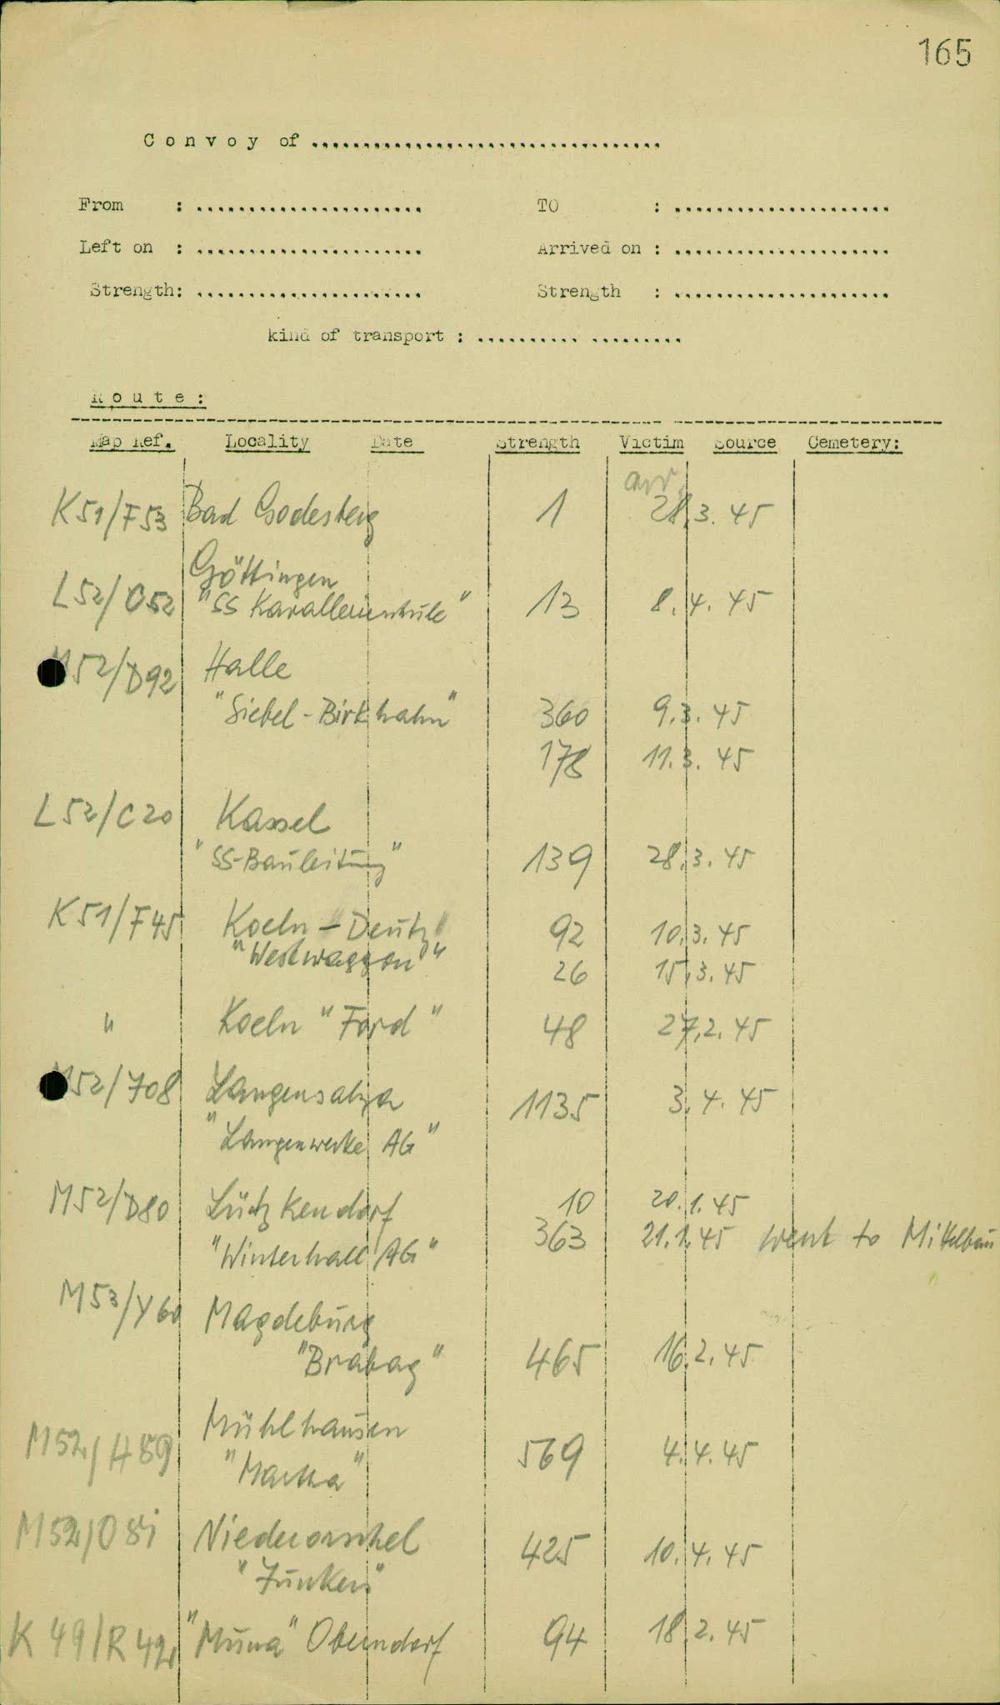 165
Convoy of ..................................
From : ...................... TO : .....................
Left on : ...................... Arrived on : .....................
Strength: ...................... Strength : .....................
kind of transport : .......... .........
Route:
Map Ref. Locality Date Strength Victim Source Cemetery:
arr.
K51/F53 Bad Godesberg 1 28.3.45
Göttingen
L52/C52 "SS Kavallerieschule" 13 8.4.45
M52/D92 Halle
"Siebel-Birkhahn" 360 9.3.45
178 11.3.45
L52/C20 Kassel
"SS-Bauleitung" 139 28.3.45
K51/F45 Koeln - Deutz 92 10.3.45
"Westwaggon" 26 15.3.45
" Koeln "Ford" 48 27.2.45
M52/J08 Langensalza 1135 3.4.45
"Langenwerke AG"
M52/D80 Lützkendorf 10 20.1.45
"Winterhall AG" 363 21.1.45 went to Mittelbau
M53/Y60 Magdeburg
"Brabag" 465 16.2.45
Mühlhausen
M52/H89 "Martha" 569 4.4.45
M52/ Niederorschel 425 10.4.45
"Junkers"
K49/R42 "Muna" Oberndorf 94 18.2.45